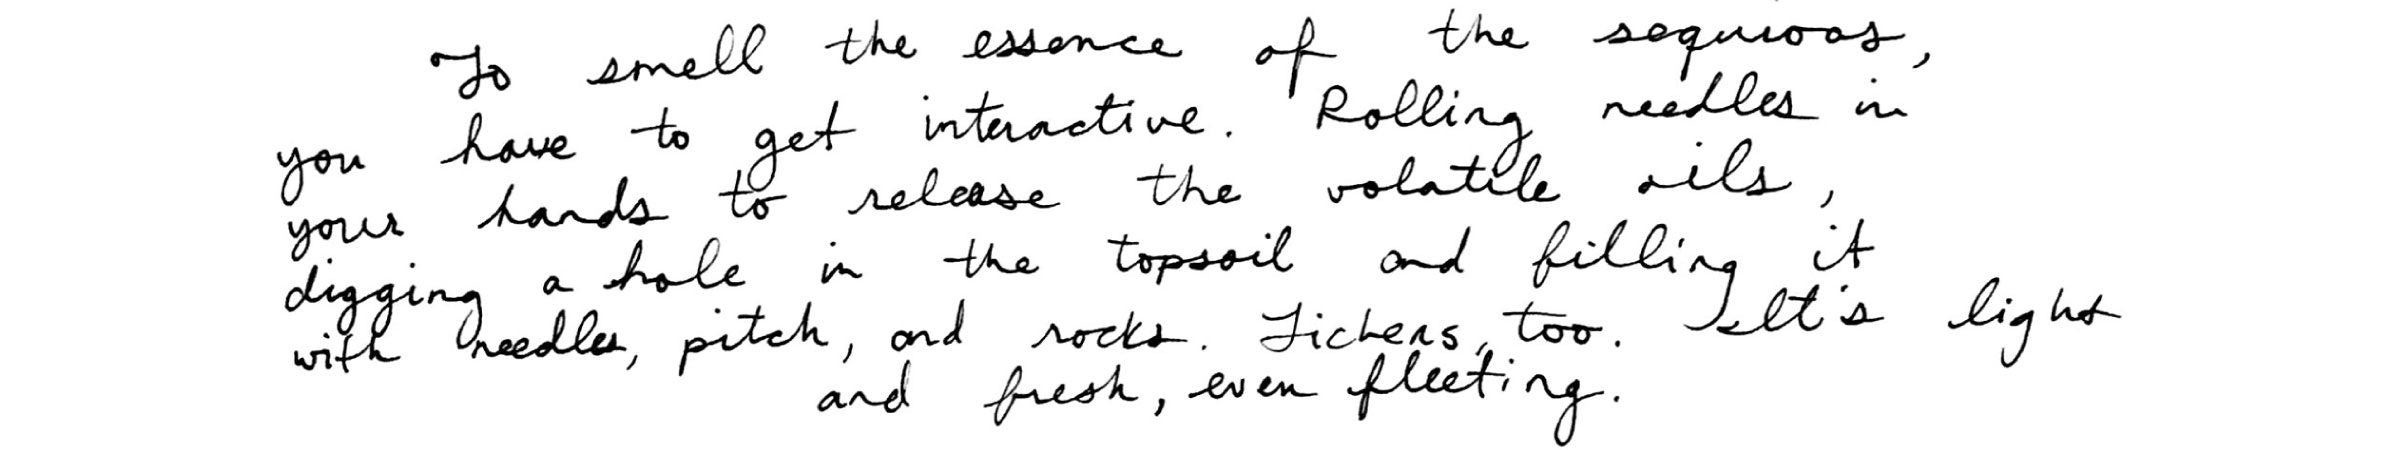 To smell the essence of the sequioas,
you have to get interactive. Rolling needles in
your hands to release the volatile oils,
digging a hole in the topsoil and filling it
with needles, pitch, and rocks. Lichens, too. It's light
and fresh, even fleeting.